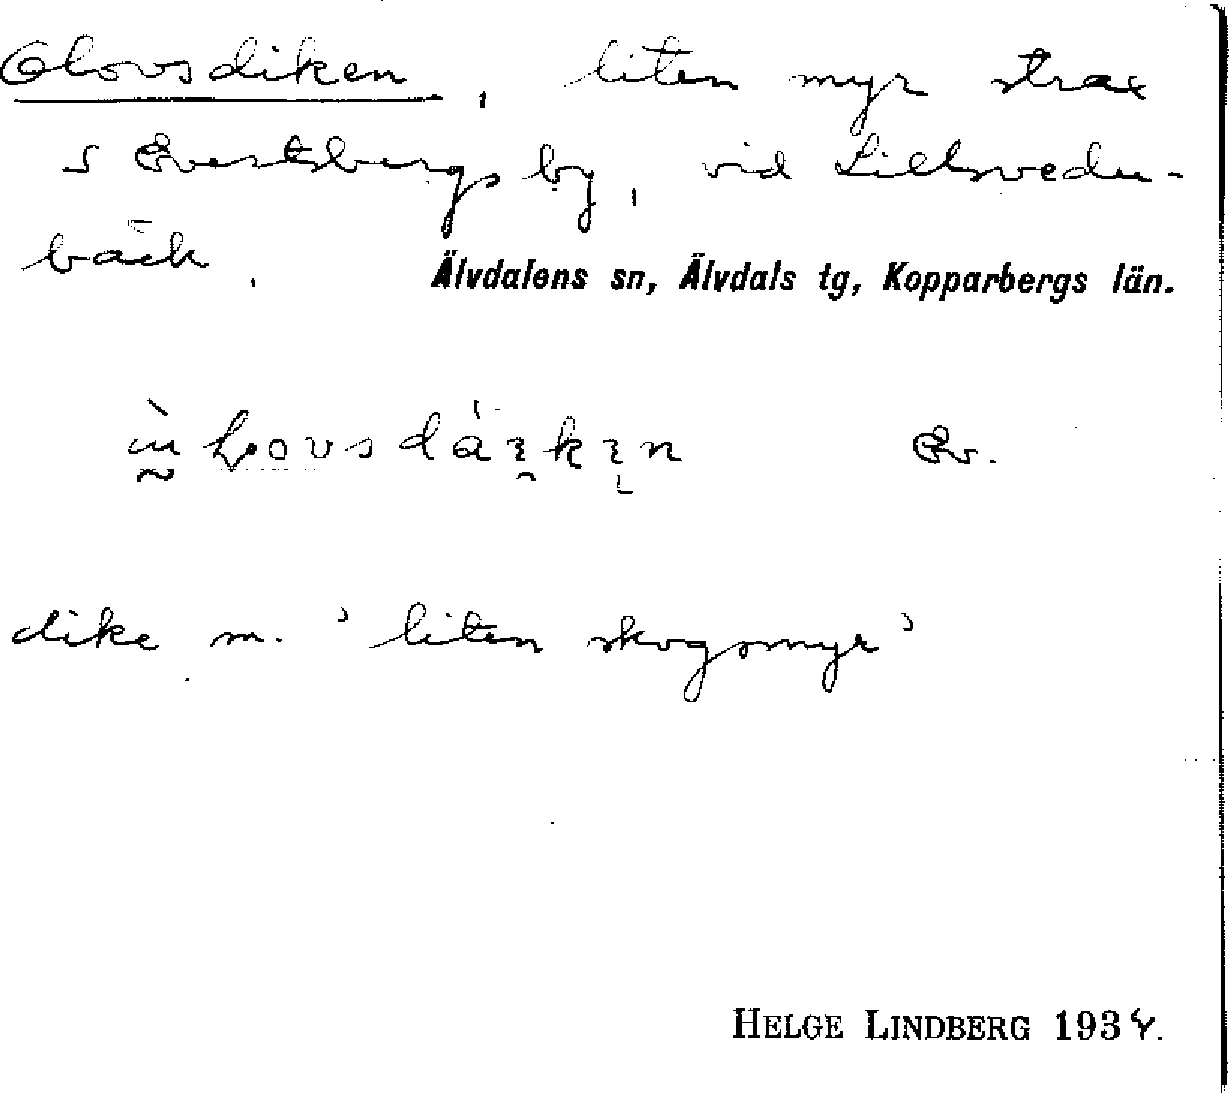 Olovsdiken, liten myr strax
s Evertsbergs by, vid Lillsvedu-
bäck.
Älvdalens sn, Älvdals tg, Kopparbergs län.
Ev.
dike m. 'liten skogsmyr'
HELGE LINDBERG 1934.